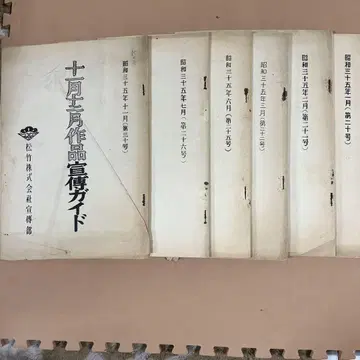 昭和三十五年十一月(第三十号)
十一月十二月作品宣傳ガイド
松竹株式会社宣傳部
昭和三十五年七月(第二十六号)
昭和三十五年六月(第二十五号)
昭和三十五年三月(第二十二号)
昭和三十五年二月(第二十一号)
昭和三十五年一月(第二十号)